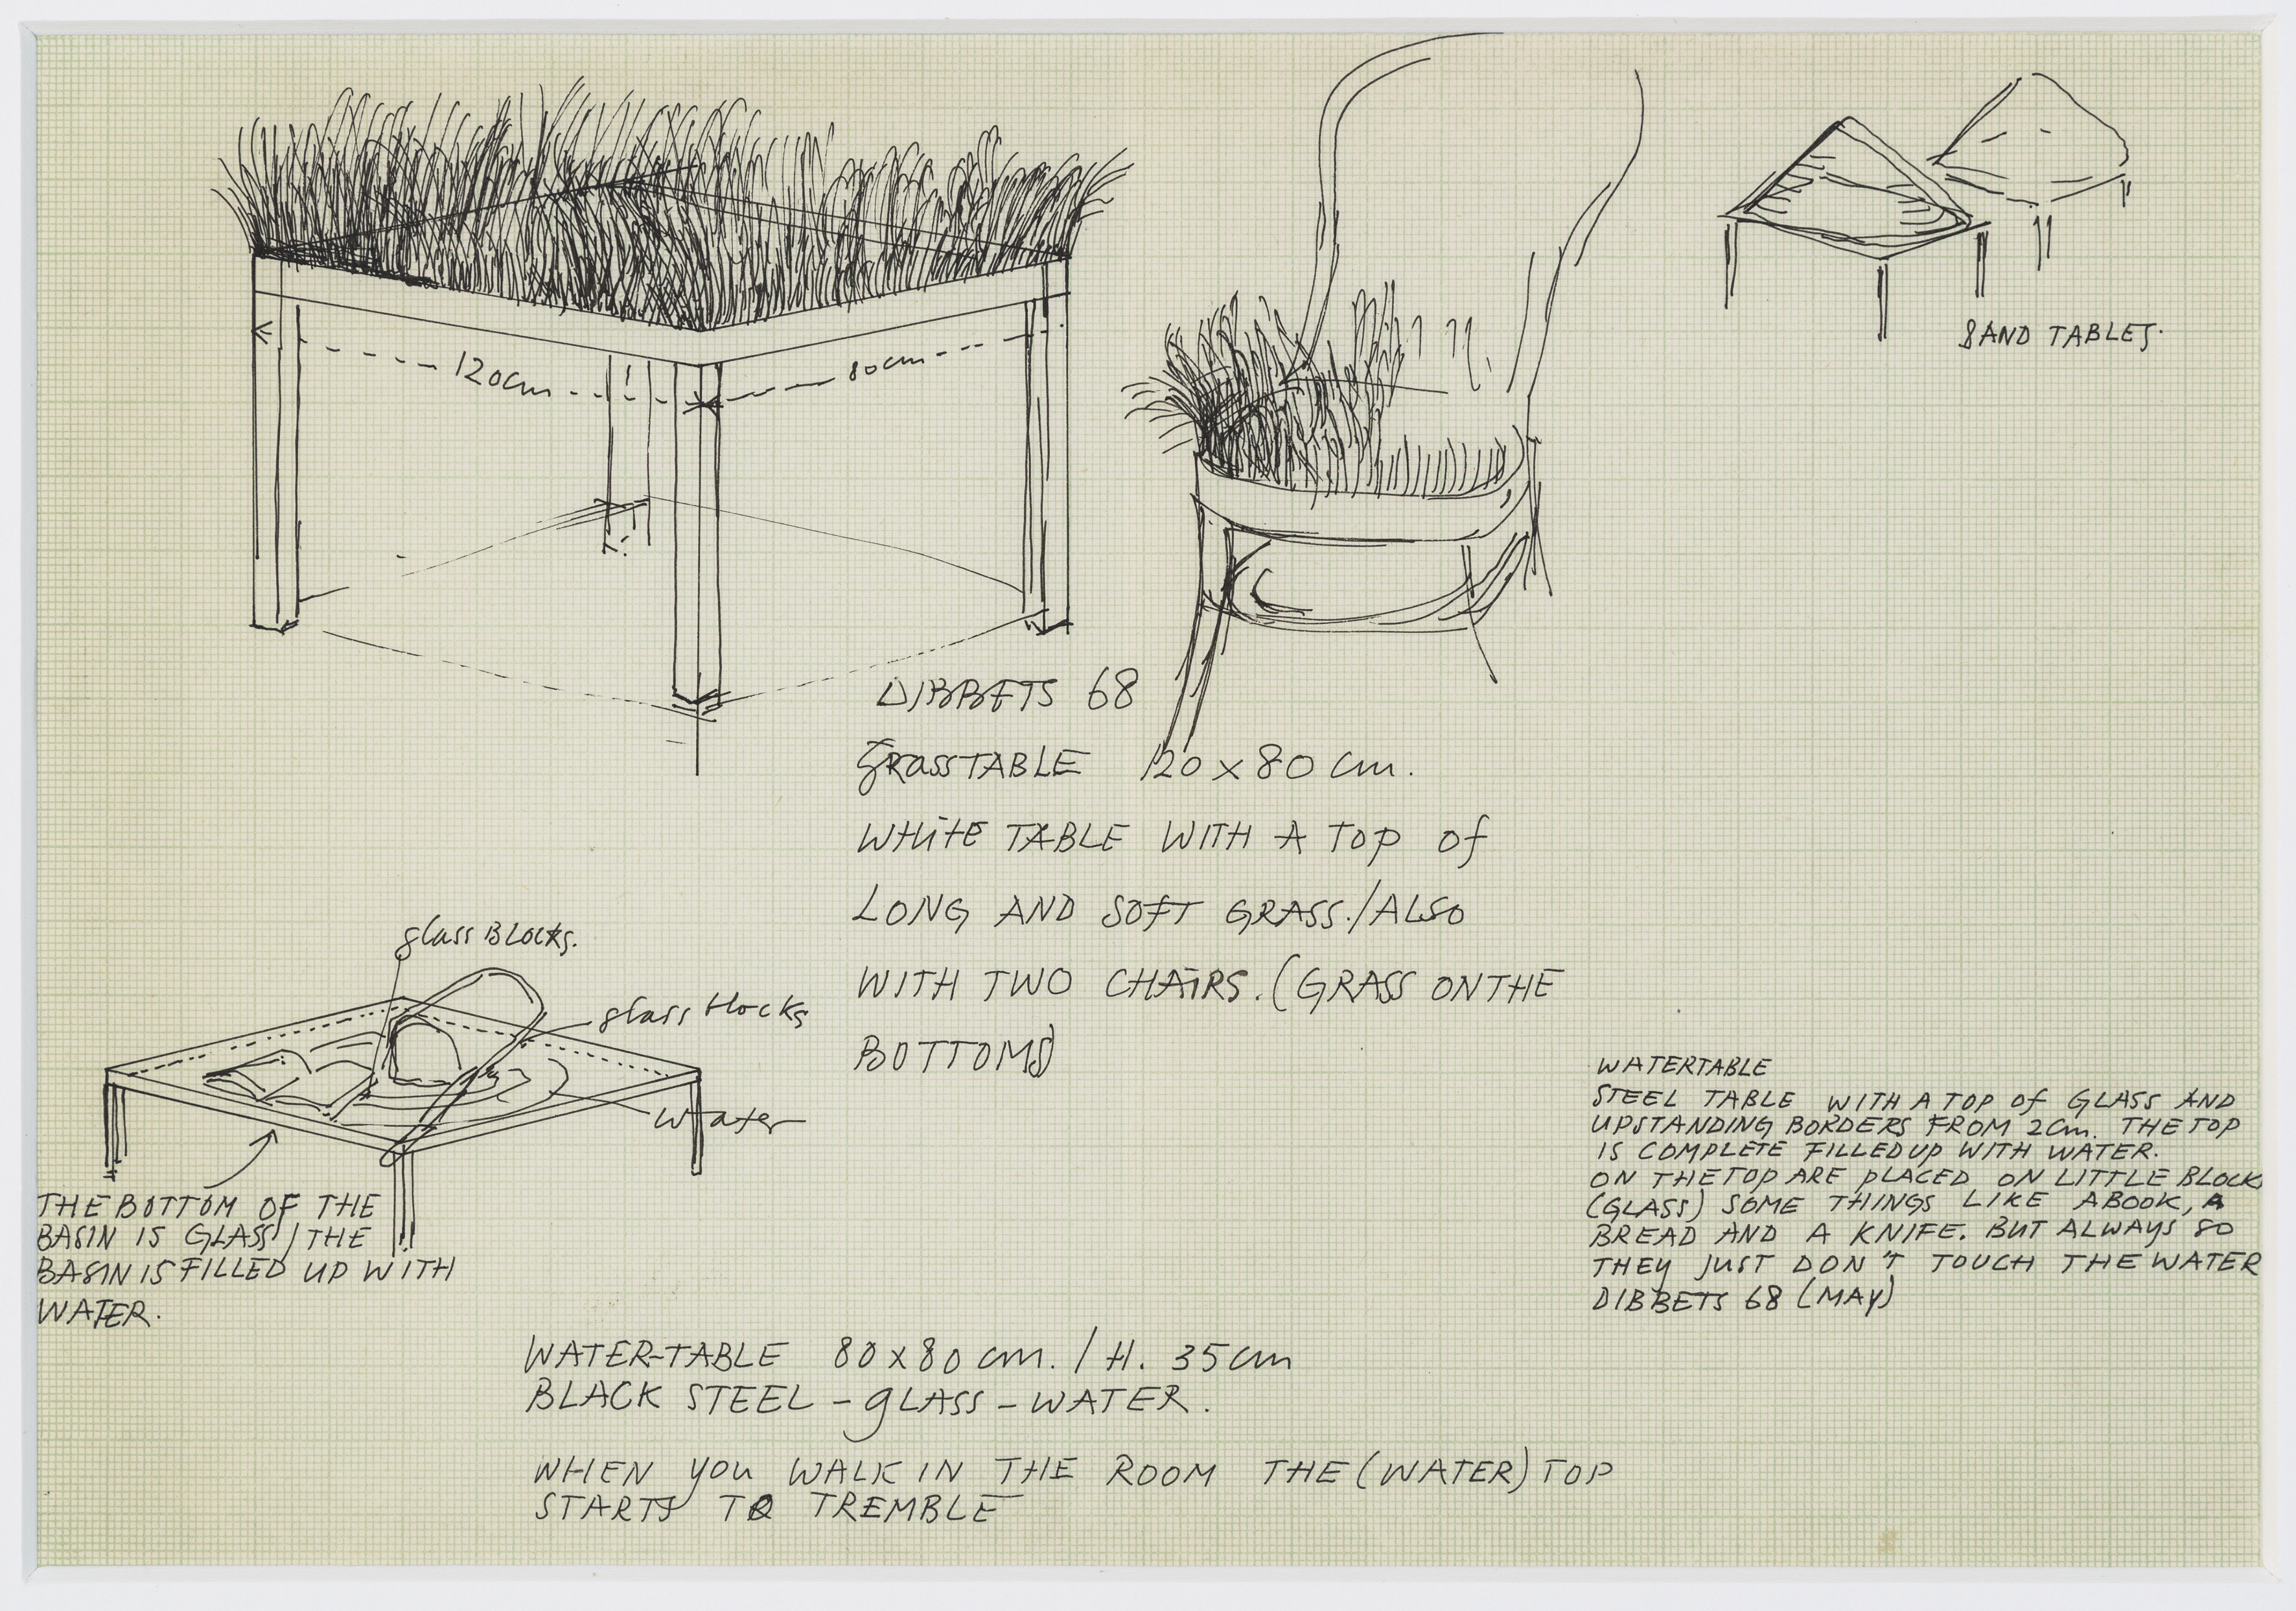 120cm
80cm
SAND TABLES.
DIBBETS 68
GRASSTABLE 120 x 80 cm.
WHITE TABLE WITH A TOP of
LONG AND SOFT GRASS./ALSO
WITH TWO CHAIRS. (GRASS ON THE
BOTTOMS)
glass BLOCKS.
glass blocks
water
THE BOTTOM OF THE
BASIN IS GLASS/THE
BASIN IS FILLED UP WITH
WATER.
WATERTABLE
STEEL TABLE WITH A TOP of GLASS AND
UPSTANDING BORDERS FROM 2cm. THE TOP
IS COMPLETE FILLED UP WITH WATER.
ON THE TOP ARE PLACED ON LITTLE BLOCKS
(GLASS) SOME THINGS LIKE A BOOK, A
BREAD AND A KNIFE. BUT ALWAYS SO
THEY JUST DON'T TOUCH THE WATER
DIBBETS 68 (MAY)
WATER-TABLE 80 x 80 cm. / H. 35 cm
BLACK STEEL - gLASS - WATER.
WHEN YOU WALK IN THE ROOM THE (WATER) TOP
STARTS TO TREMBLE